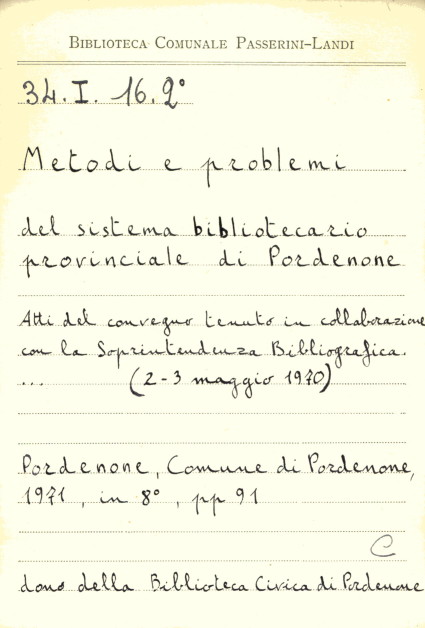 BIBLIOTECA COMUNALE PASSERINI-LANDI
34.I. 16.2°
Metodi e problemi
del sistema bibliotecario
provinciale di Pordenone
Atti del convegno tenuto in collaborazione
con la Soprintendenza Bibliografica.
... (2-3 maggio 1970)
Pordenone, Comune di Pordenone,
1971, in 8°, pp 91
C
dono della Biblioteca Civica di Pordenone